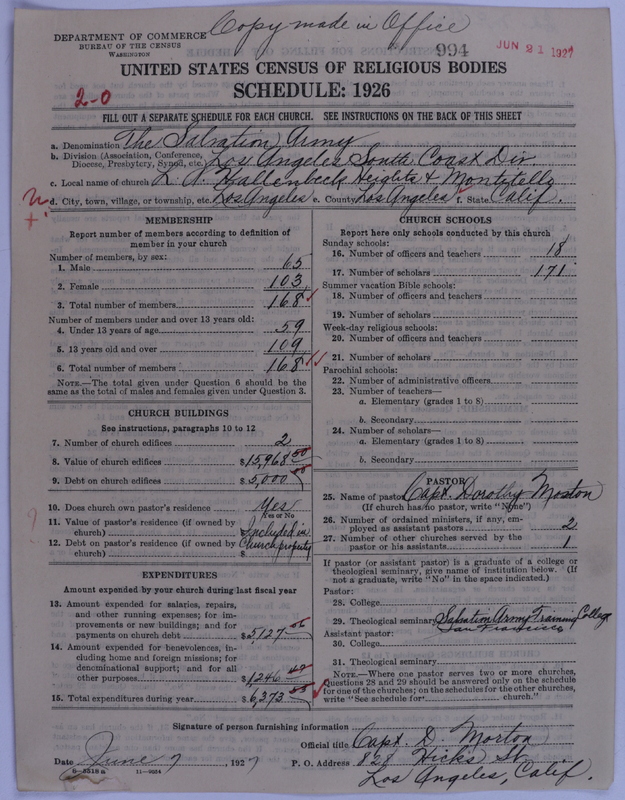 Copy made in Office
DEPARTMENT OF COMMERCE
BUREAU OF THE CENSUS
WASHINGTON
994
JUN 21 1927
UNITED STATES CENSUS OF RELIGIOUS BODIES
SCHEDULE: 1926
2-0
FILL OUT A SEPARATE SCHEDULE FOR EACH CHURCH. SEE INSTRUCTIONS ON THE BACK OF THIS SHEET
a. Denomination The Salvation Army
b. Division (Association, Conference, Diocese, Presbytery, Synod, etc.) Los Angeles South Coast Div.
c. Local name of church L. A. Hallenbeck Heights & Montytello
d. City, town, village, or township, etc. Los Angeles e. County Los Angeles f. State Calif.
MEMBERSHIP
Report number of members according to definition of
member in your church
Number of members, by sex:
1. Male 65
2. Female 103
3. Total number of members 168
Number of members under and over 13 years old:
4. Under 13 years of age 59
5. 13 years old and over 109
6. Total number of members 168
NOTE.—The total given under Question 6 should be the
same as the total of males and females given under Question 3.
CHURCH BUILDINGS
See instructions, paragraphs 10 to 12
7. Number of church edifices 2
8. Value of church edifices $15,968 50
9. Debt on church edifices $5,000 00
10. Does church own pastor's residence Yes
Yes or No
11. Value of pastor's residence (if owned by
church) Included in
12. Debt on pastor's residence (if owned by
church) $ Church property
EXPENDITURES
Amount expended by your church during last fiscal year
13. Amount expended for salaries, repairs,
and other running expenses; for im-
provements or new buildings; and for
payments on church debt $5127
14. Amount expended for benevolences, in-
cluding home and foreign missions; for
denominational support; and for all
other purposes $1246
15. Total expenditures during year $6,373
CHURCH SCHOOLS
Report here only schools conducted by this church
Sunday schools:
16. Number of officers and teachers 18
17. Number of scholars 171
Summer vacation Bible schools:
18. Number of officers and teachers
19. Number of scholars
Week-day religious schools:
20. Number of officers and teachers
21. Number of scholars
Parochial schools:
22. Number of administrative officers
23. Number of teachers—
a. Elementary (grades 1 to 8)
b. Secondary
24. Number of scholars—
a. Elementary (grades 1 to 8)
b. Secondary
PASTOR
25. Name of pastor Capt. Dorothy Moston
(If church has no pastor, write "None")
26. Number of ordained ministers, if any, em-
ployed as assistant pastors 2
27. Number of other churches served by the
pastor or his assistants 1
If pastor (or assistant pastor) is a graduate of a college or
theological seminary, give name of institution below. (If
not a graduate, write "No" in the space indicated.)
Pastor:
28. College
29. Theological seminary Salvation Army Training College
San Francisco
Assistant pastor:
30. College
31. Theological seminary
NOTE.—Where one pastor serves two or more churches,
Questions 28 and 29 should be answered only on the schedule
for one of the churches; on the schedules for the other churches,
write "See schedule for church."
Signature of person furnishing information
Official title Capt. D. Morton
Date June 7, 1927 P. O. Address 828 Hicks St
Los Angeles, Calif.
8-2518a 11-9554